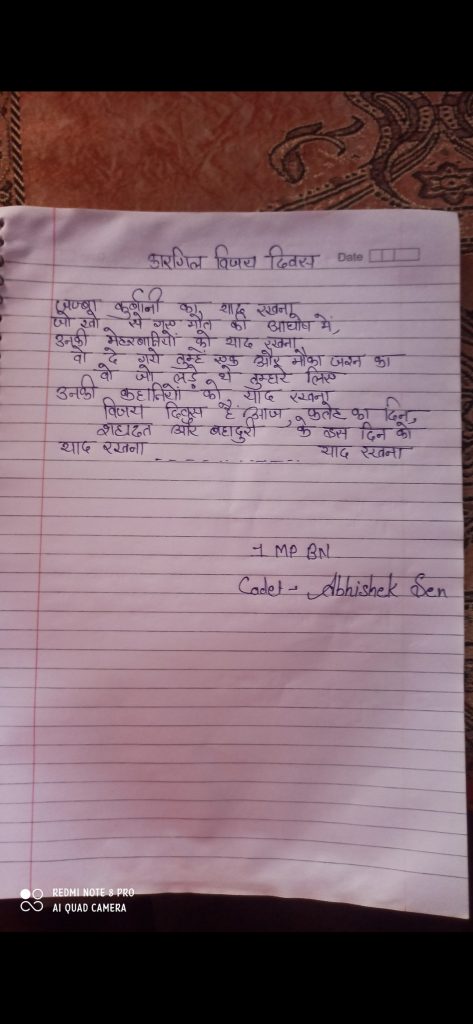 कारगिल विजय दिवस Date
जज्बा कुर्बानी का, याद रखना
जो खो से गए मौत की आघोष में,
उनकी मेहरबानियों को याद रखना
वो दे गये तुम्हे एक और मौका जश्न का
वो जो लड़े थे तुम्हारे लिए
उनकी कहानियों को, याद रखना
विजय दिवस है आज, फतेह का दिन,
शहादत और बहादुरी के इस दिन को
याद रखना ................ याद रखना
1 MP BN
Cadet - Abhishek Sen
REDMI NOTE 8 PRO
AI QUAD CAMERA